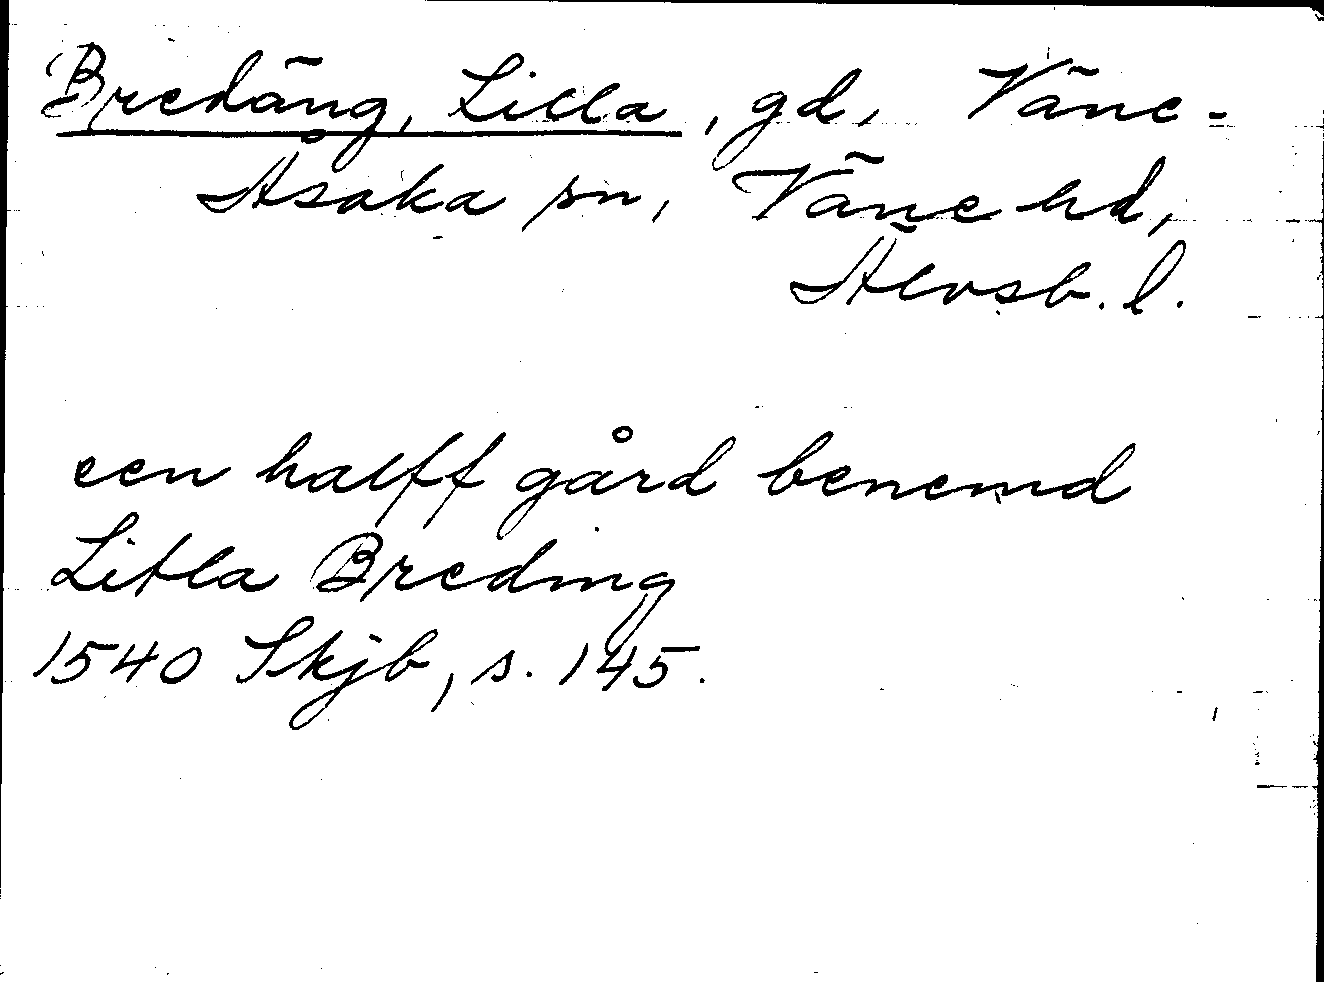 Bredäng, Lilla, gd, Väne-
Åsaka sn, Väne hd,
Älvsb. l.
een halff gård benemd
Litla Breding
1540 Skjb, s. 145.